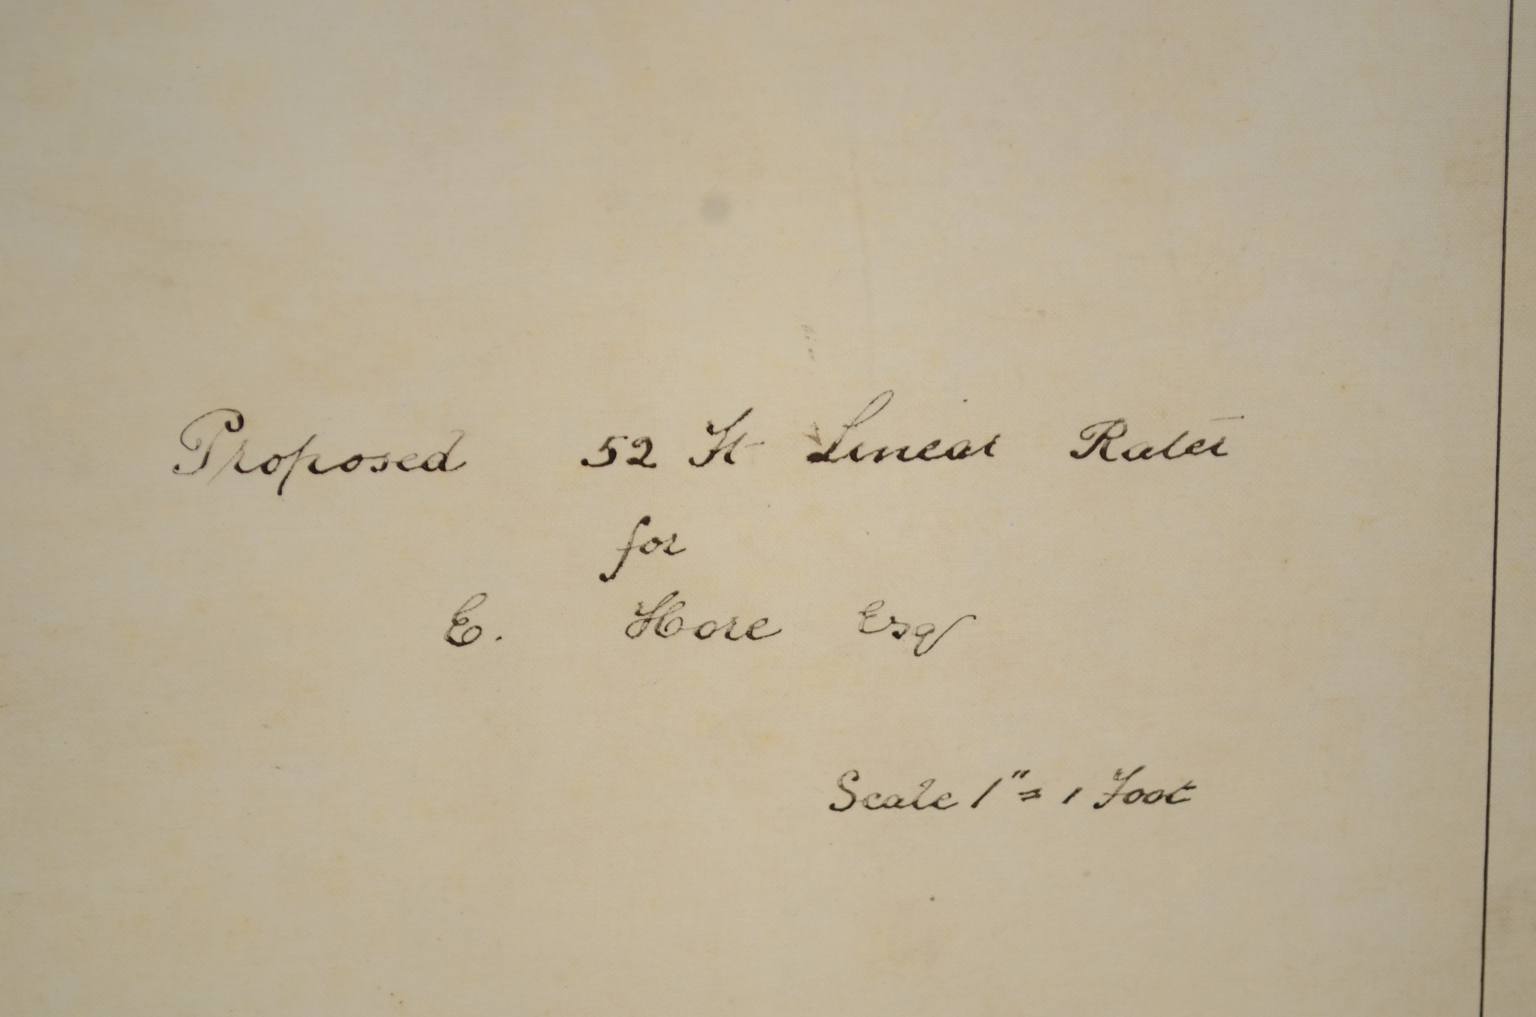 Proposed 52 Ft Linear Rater
for
E. Hore Esq
Scale 1" = 1 Foot